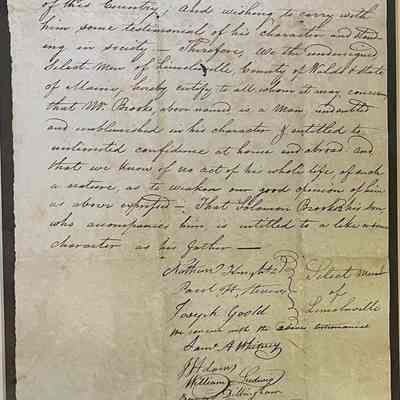 of this Country; And wishing to carry with
him some testimonial of his character and stand
ing in society — Therefore, We the undersigned
Select Men of Lincolnville, County of Waldo & State
of Maine, hereby certify to all whom it may concern
that Mr. Brooks above named is a Man, undoubted
and unblemished in his character & entitled to
unlimited confidence at home and abroad and
that we know of no act of his whole life, of such
a nature, as to weaken our good opinion of him
as above expressed — That Solomon Brooks his son,
who accompanies him is entitled to a like
character as his father —
Nathan Knight 2d
Select Men
Paul H. Stevens
of
Joseph Goold
Lincolnville
We concur with the above testimonial
Saml A Whitney
J Adams
William Ludwig
Dillingham